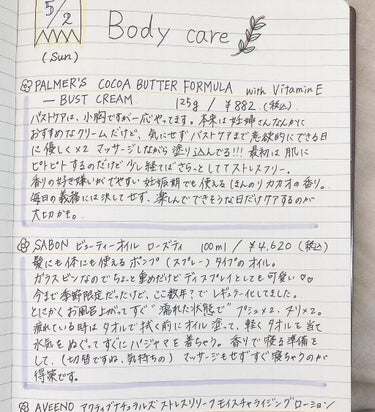 5/2
(Sun)
Body care
PALMER'S COCOA BUTTER FORMULA with Vitamin E
— BUST CREAM 125g / ¥882 (税込)
バストケアは、小胸ですが一応やってます。本来は妊婦さんなんかに
おすすめなクリームだけど、気にせずバストケアまで意欲的にできる日
に優しく×2 マッサージしながら塗り込んでる!!! 最初は肌に
ピトピトするのだけど少し経てばさらっとしててストレスフリー。
香りの好き嫌いがでやすい妊娠期でも使えるほんのりカカオの香り。
毎日の義務には決してせず、楽しんでできそうな日だけケアするのが
大切かも。
SABON ビューティーオイル ローズティ 100ml / ¥4,620 (税込)
髪にも体にも使えるポンプ (スプレー) タイプのオイル。
ガラスビンなのでちょと重めだけどディスプレイとしても可愛い♡♡
今まで季節限定だったけど、ここ数年?でレギュラー化してました。
とにかくお風呂上がってすぐ"濡れた状態で"プシュ×2、ヌリ×2。
疲れている時はタオルで拭く前にオイル塗って、軽くタオルで当て
水気をぬぐってすぐにパジャマを着ちゃう。香りで寝る準備を
して、(切替ですね、気持ちの) マッサージもせずすぐ寝ちゃうのが
得策です。
AVEENO アクティブナチュラルズ ストレスリリーフ モイスチャライジングローション